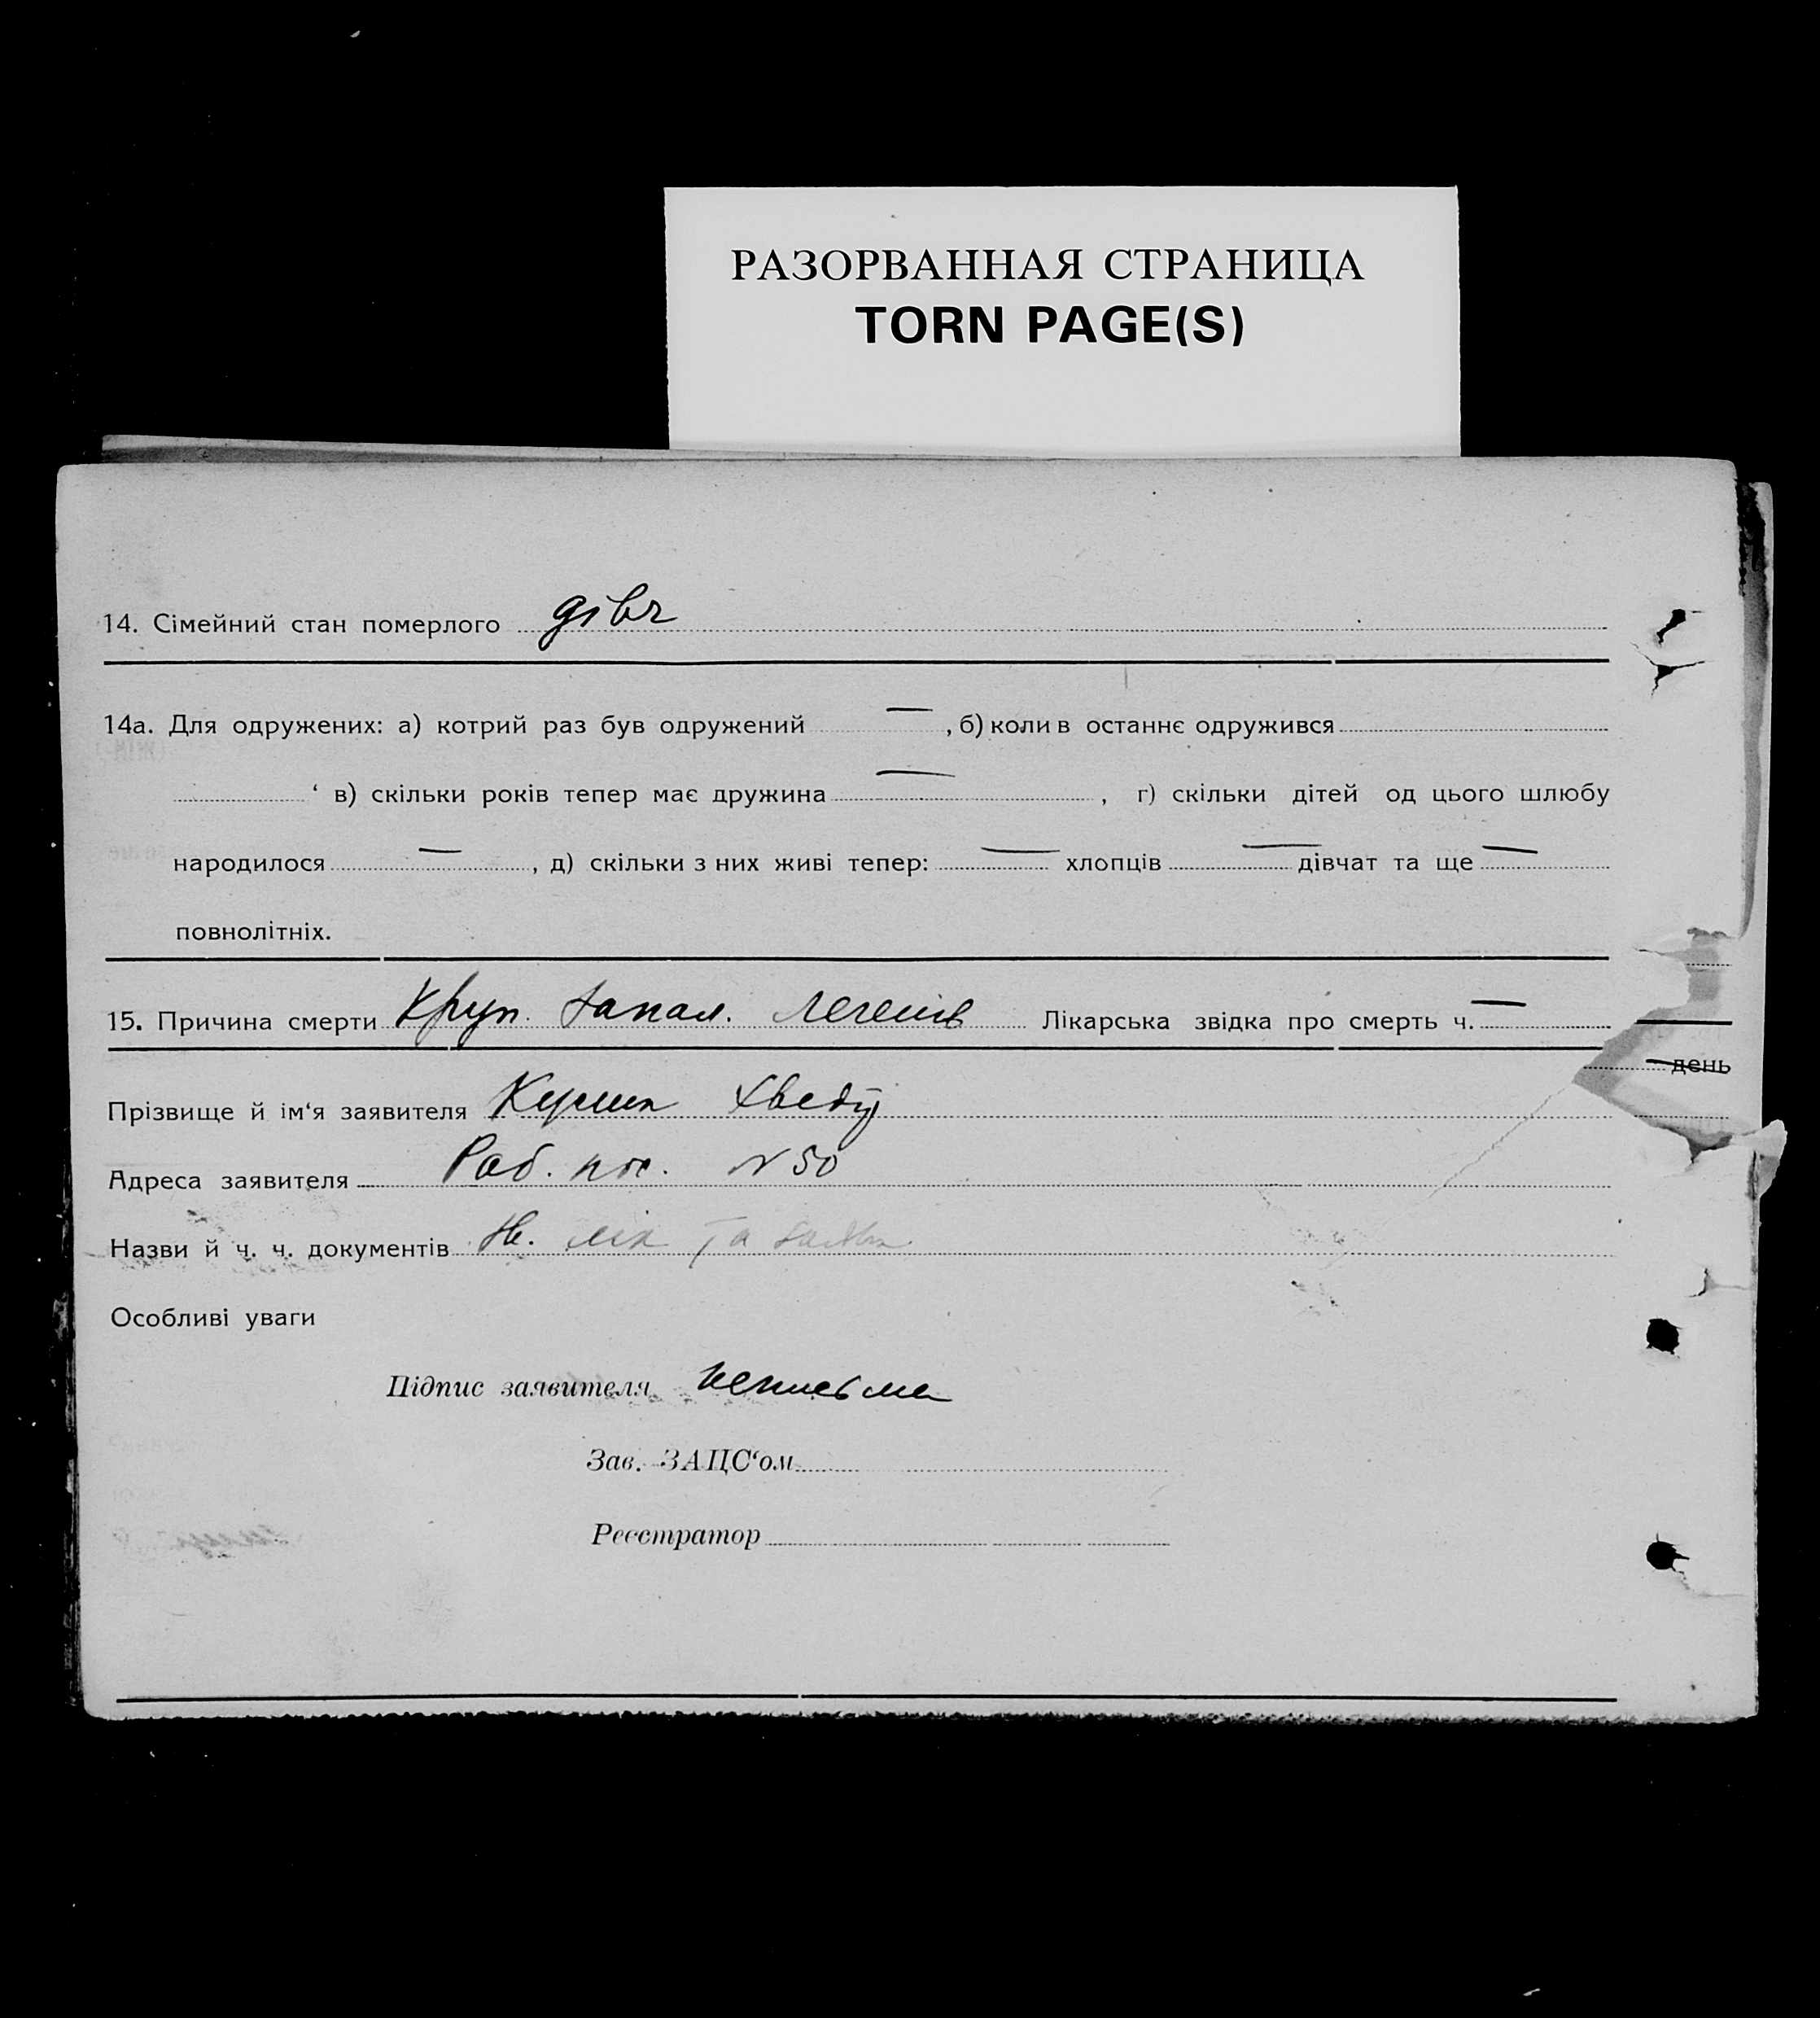 РАЗОРВАННАЯ СТРАНИЦА
TORN PAGE(S)
14. Сімейний стан померлого дівч
14а. Для одружених: а) котрий раз був одружений — , б) коли в останнє одружився
‘ в) скільки років тепер має дружина — , г) скільки дітей од цього шлюбу
народилося — , д) скільки з них живі тепер: — хлопців — дівчат та ще —
повнолітніх.
15. Причина смерти Круп. запал. легенів Лікарська звідка про смерть ч. —
день
Прізвище й ім‘я заявителя Хведір
Адреса заявителя Раб. пос. N 50
Назви й ч. ч. документів лік та заява
Особливі уваги
Підпис заявителя неписьме
Зав. ЗАЦС‘ом
Реєстратор